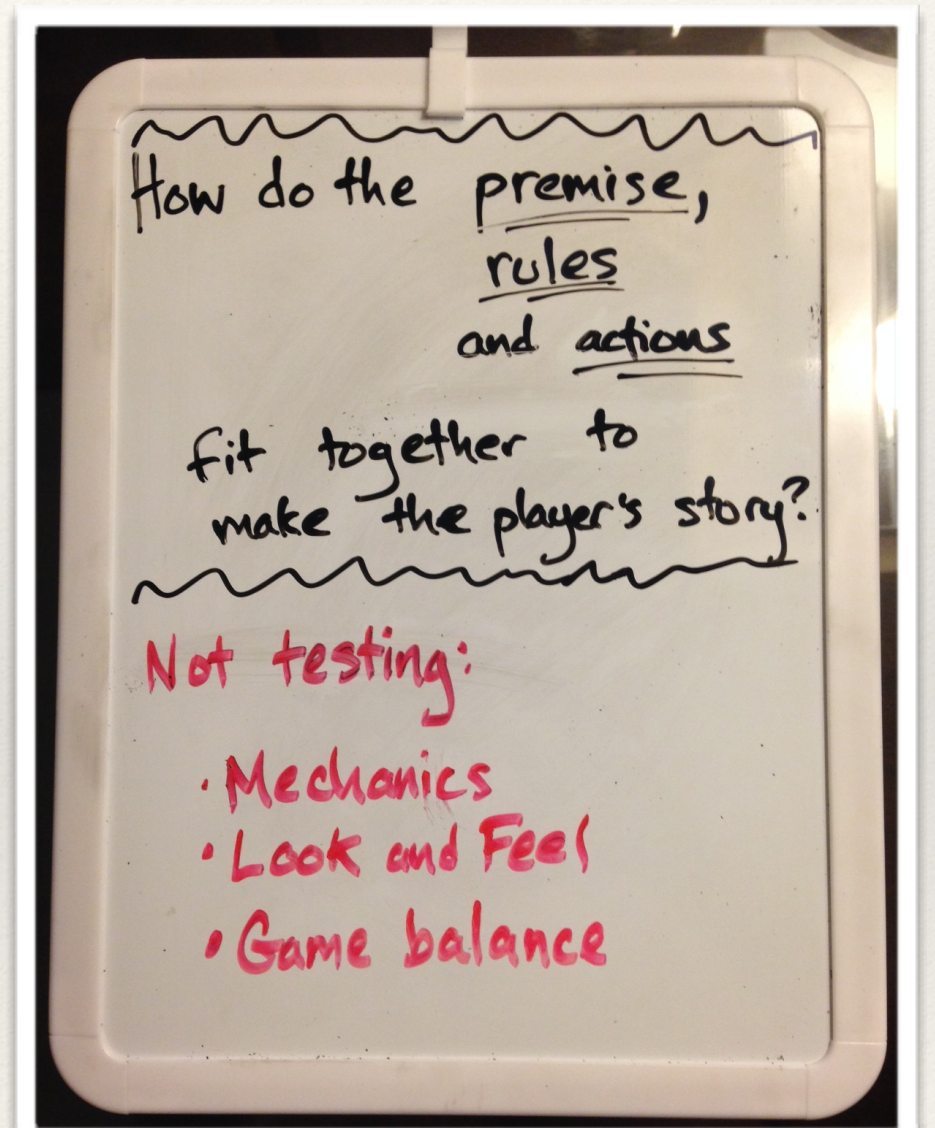 How do the premise,
rules
and actions
fit together to
make the player's story?
Not testing:
· Mechanics
· Look and Feel
· Game balance